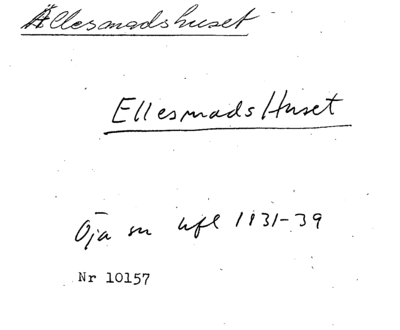 Ällesmadshuset
EllesmadsHuset
Öja sn hfl 1831-39
Nr 10157